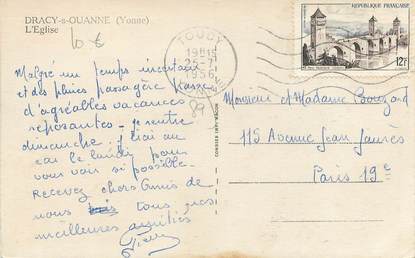 DRACY-s-OUANNE (Yonne)
L'Eglise
10 €
TOUCY
25-7
1956
YONNE
RÉPUBLIQUE FRANÇAISE
12F
Malgré un temps incertain
et des pluies passagère
d'agréables vacances
reposantes - je rentre
dimanche, j'irai au
cas le lundi pour
vous voir si possible
Recevez chers Amis de
nous tous nos
meilleures amitiés
Monsieur et Madame Bouzard
115 Avenue Jean Jaurès
Paris 19e